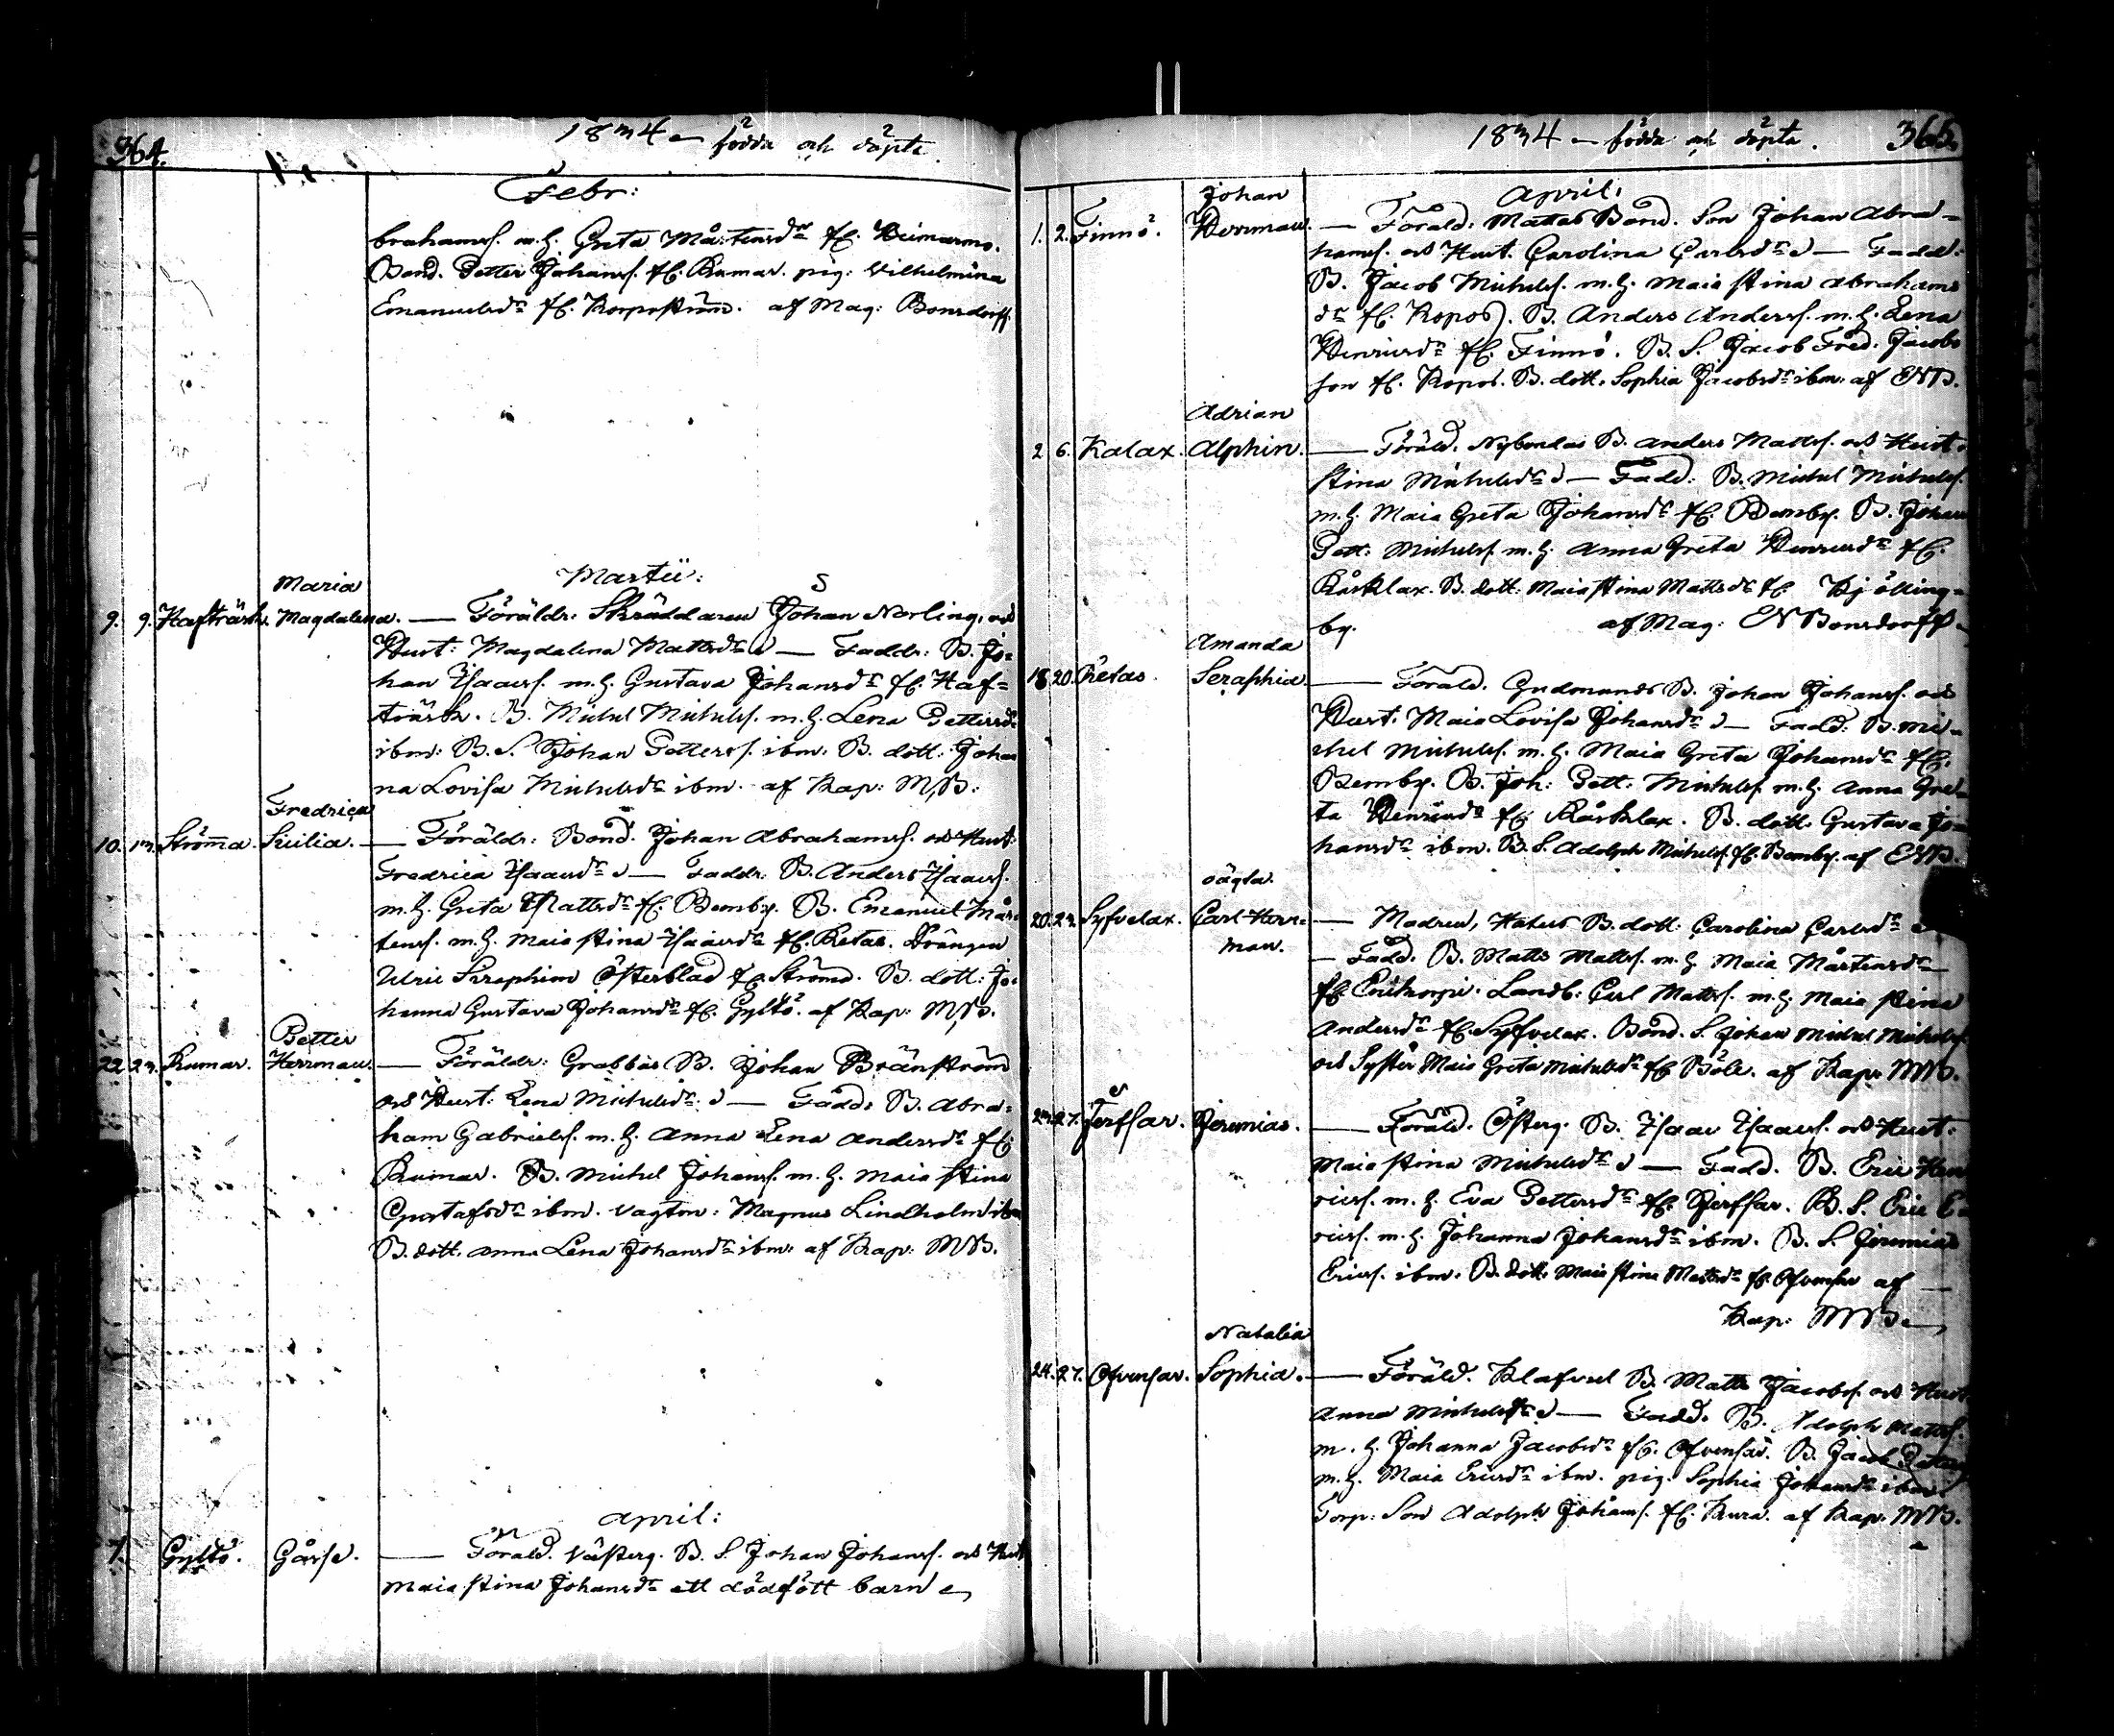 364.
1834 födda och döpta
Febr:
brahamss. m.h. Greta Mårtensdr fr.
Bond. Petter Johanss. fr. Rumar. pig: Vilhelmina
Emanuelsdr fr. Korpoström. af Mag: Bonsdorff.
Martii:
Maria
9. 9. Hafträsk. Magdalena. — Föräldr: Skräddaren Johan Norling, och
Hust: Magdalena Mattsdr — Faddr: B. Jo=
han Isaacss. m.h. Gustava Johansdr fr. Haf=
träsk. B. Michel Michelss. m.h. Lena Pettersdr
ibm: B. S. Johan Petterss. ibm: B. dott: Johan
na Lovisa Michelsdr ibm. af Kap: MB.
Fredrica
10. 13. Strömma. Sicilia. — Föräldr: Bond. Johan Abrahamss. och Hust:
Fredrica Isaacsdr — Faddr: B. Anders Isaacss.
m.h. Greta Mattsdr fr. Bemby. B. Emanuel Mår=
tenss. m.h. Maia Stina Isaacsdr fr. Retas. Drängen
Ulric Seraphim Österblad fr. Ströma. B. dott: Jo=
hanna Gustava Johansdr fr. Gyltö. af Kap: MB.
Petter
22. 23. Rumar. Herrman. — Föräldr: Grabbas B. Johan Bränström
och Hust: Lena Michelsdr — Fadd: B. Abra=
ham Gabrielss. m.h. Anna Lena Andersdr fr.
Rumar. B. Michel Johanss. m.h. Maia Stina
Gustafsdr ibm. Magnus Lindholm ibm
B. dott. Anna Lena Johansdr ibm: af Kap: MB.
April:
7. Gyltö. Gåsse. — Föräld. Västerg. B. S. Johan Johanss. och Hust
Maia Stina Johansdr ett dödfött barn
1834 födda och döpta.
365.
April.
Johan
1. 2. Finnö. Herrman. — Föräld: Mattas Bond. Son Johan Abra=
hamss. och Hust. Carolina Carlsdr — Fadd:
B. Jacob Michelss. m.h. Maia Stina Abrahams
dr fr. Kopos. B. Anders Anderss. m.h. Lena
Henricsdr fr. Finnö. B. S. Jacob Fred. Jacobs
son fr. Kopos. B. dott. Sophia Jacobsdr ibm: af ENB.
Adrian
2 6. Kalax. Alphin. — Föräld. Nybondas B. Anders Mattss. och Hust.
Stina Michelsdr — Fadd: B. Michel Michelss.
m.h. Maia Greta Johansdr fr. Bemby. B. Johan
Pett: Michelss. m.h. Anna Greta Henricsdr fr.
Råsklax. B. dott: Maia Stina Mattsdr fr. Kjölling=
by. af Mag: EN Bonsdorff.
Amanda
18 20. Retas. Seraphia. — Föräld. Gudmunds B. Johan Johanss. och
Hust. Maia Lovisa Johansdr — Fadd: B. Mi=
chel Michelss. m.h. Maia Greta Johansdr fr.
Bemby. B. Joh: Pett: Michelss. m.h. Anna Gre=
ta Henricsdr fr Råsklax. B. dott. Gustava Jo=
hansdr ibm. B. S. Adolph Michelss. fr. Bemby. af ENB.
oägta.
20. 23. Syfvelax. Carl Herr=
man. — Modren, B. dott: Carolina Carlsdr
— Fadd. B. Matts Mattss. m.h. Maia Mårtensdr
fr. Landb: Carl Mattss. m.h. Maia Stina
Andersdr fr. Syfvelax. Bond. S. Johan Michel Michelss.
och Syster Maia Greta Michelsdr fr Böle. af Kap: MB.
23. 27. Jerfsar. Jeremias. — Föräld. Österg. B. Isaac Isaacss. och Hust.
Maia Stina Michelsdr — Fadd. B. Eric Hen
ricss. m.h. Eva Pettersdr fr. Jerfsar. B. S. Eric E=
ricss. m.h. Johanna Johansdr ibm. B. S. Jeremias
Ericss. ibm. B. dott. Maia Stina Mattsdr fr. Ofvensar af
Kap: MB.
Natalia
24. 27. Ofvensar. Sophia. — Föräld. Klafvel B. Matts Jacobss. och Hust
Anna Michelsdr — Fadd. B. Adolph Mattss.
m.h. Johanna Jacobsdr fr. Ofvensar. B. Jacob
m.h. Maia Ericsdr ibm. pig. Sophia Johansdr ibm.
Torp: Son Adolph Johanss. fr. af Kap. MB.